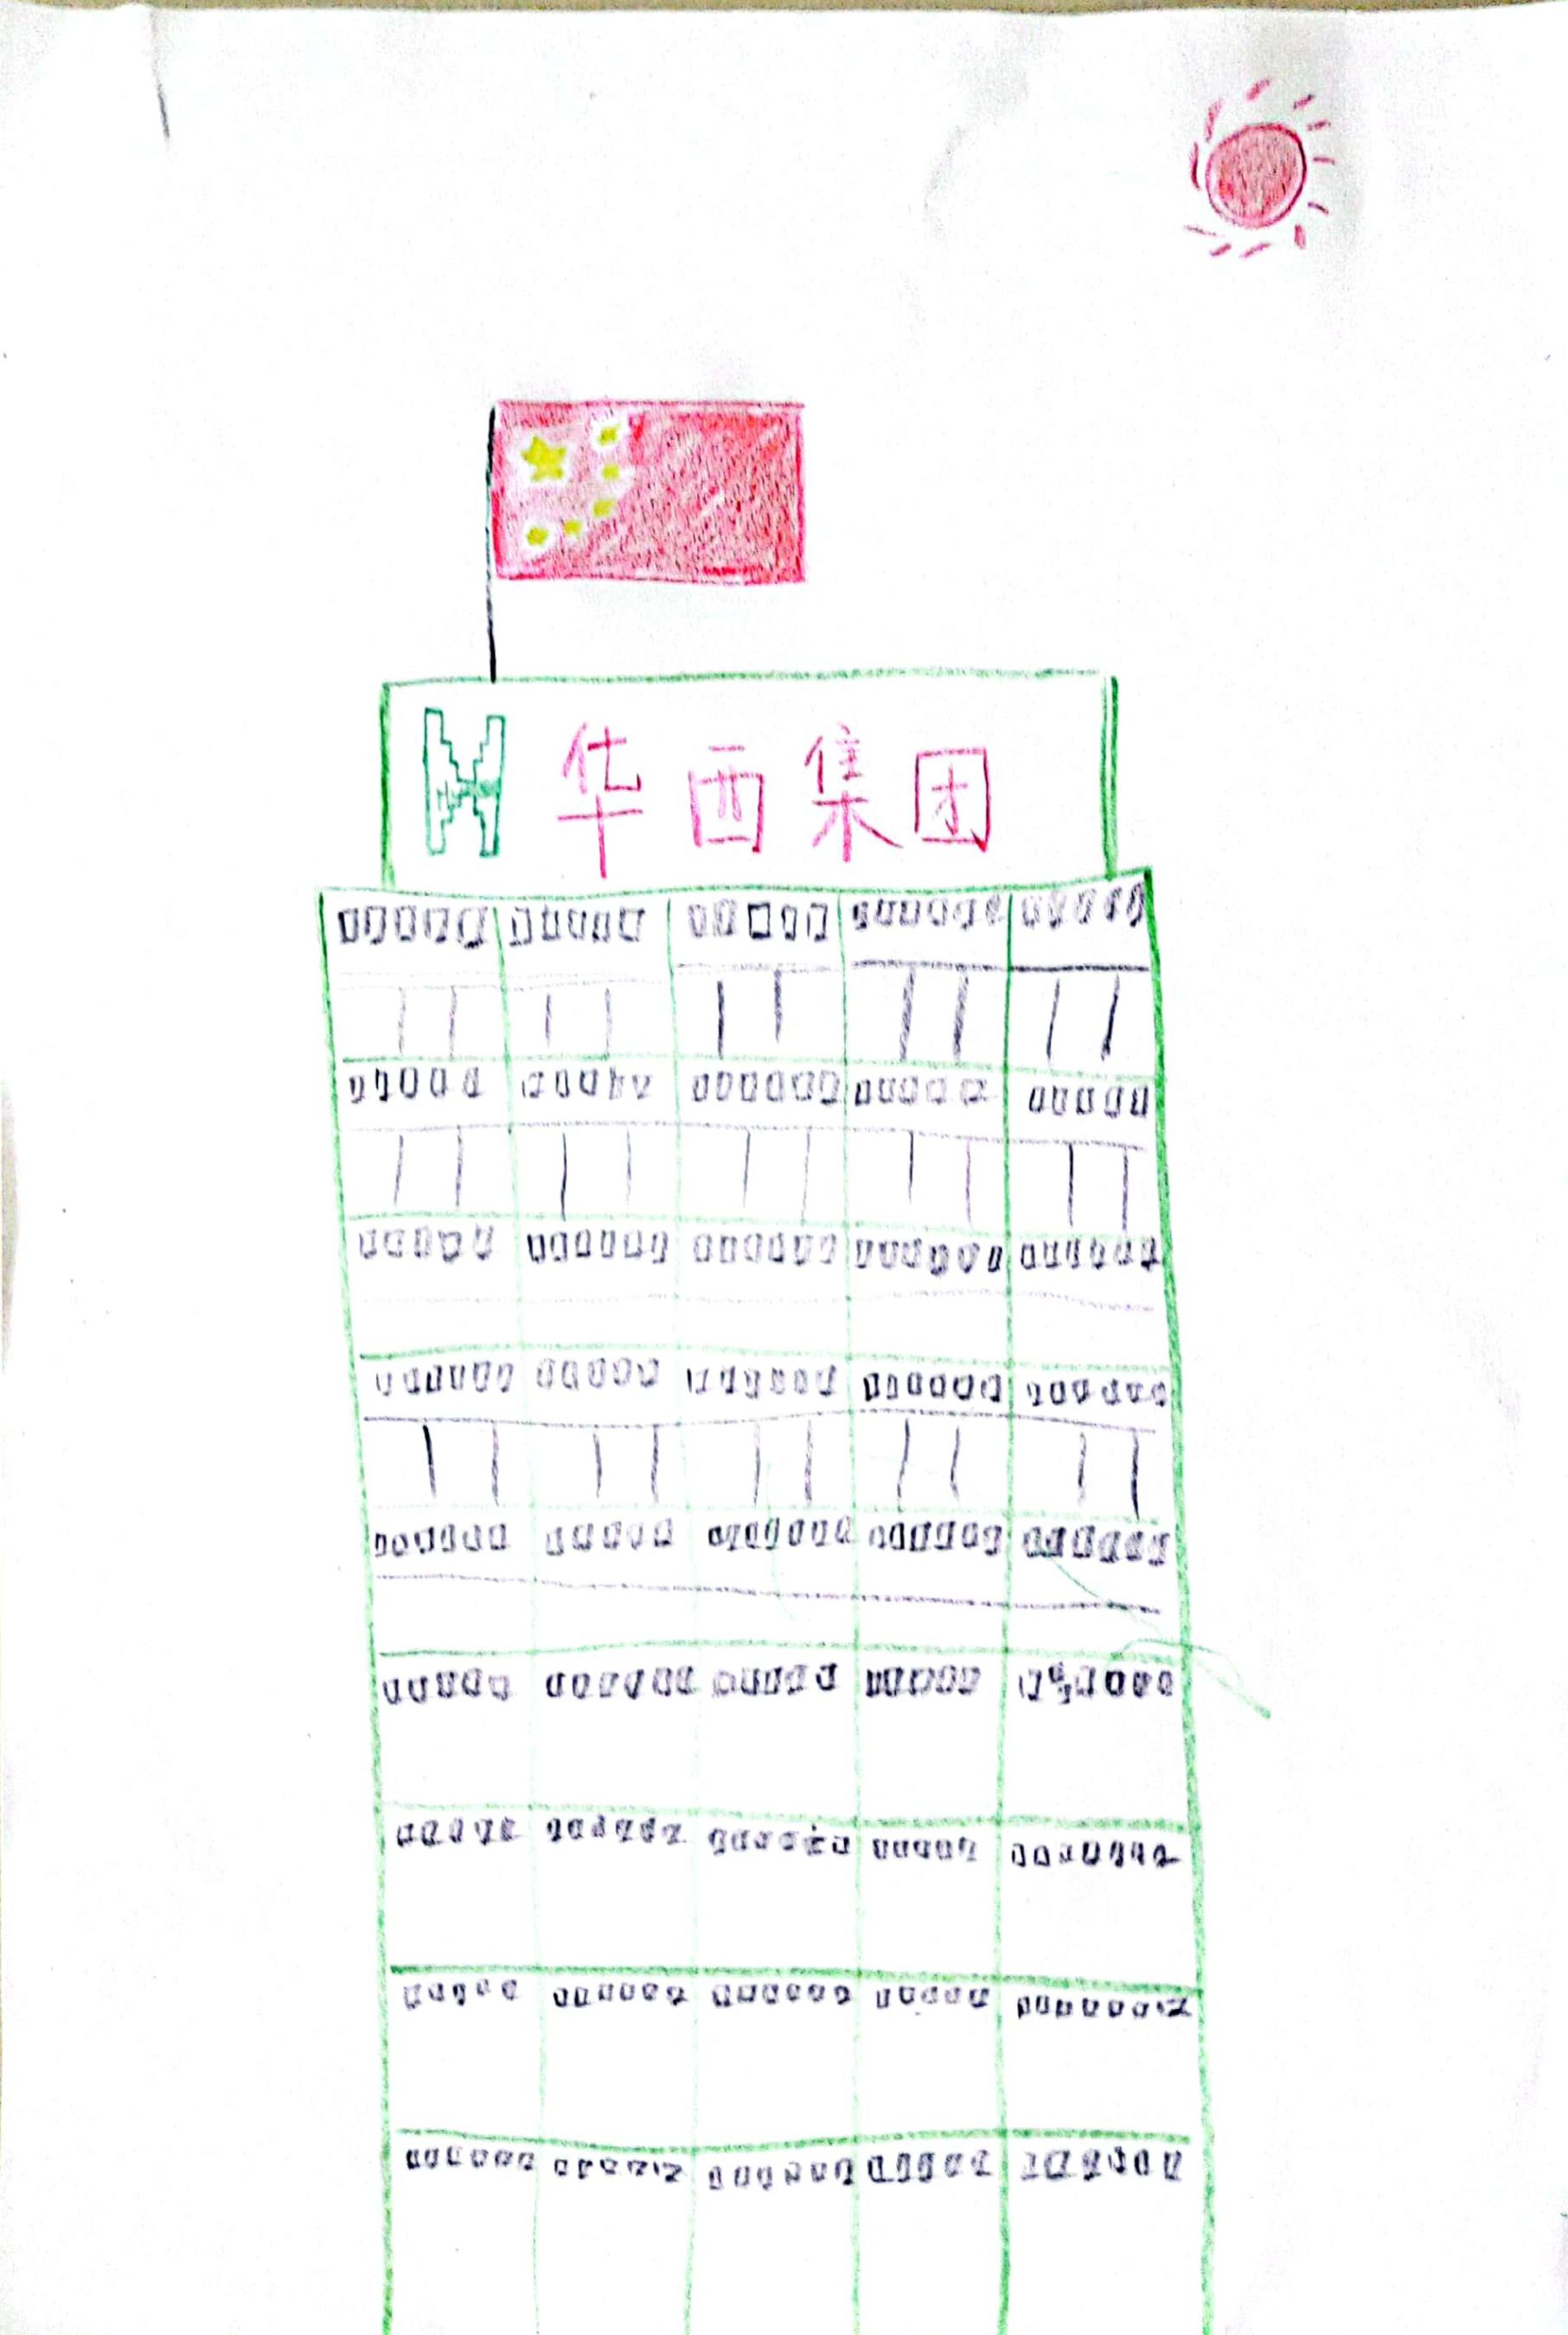 华西集团